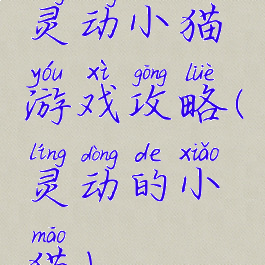 灵动小猫
yóu xì gōng lüè
游戏攻略(
líng dòng de xiǎo
灵动的小
māo
猫)